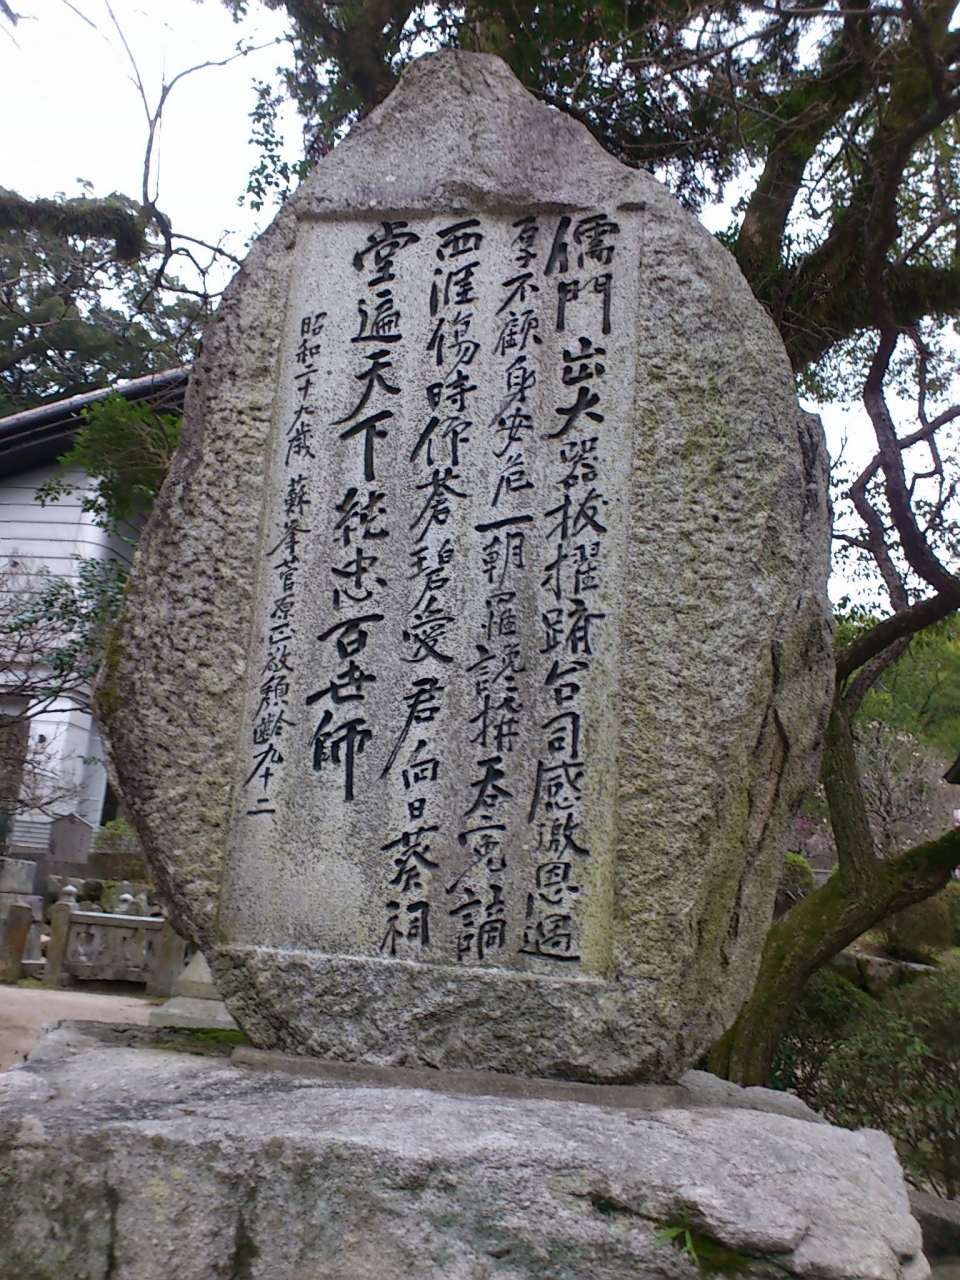 儒門出大器抜擢躋台司感激恩遇
厚不顧身安危一朝罹讒構呑寃謫
西涯傷時仰蒼碧愛君向日葵祠
堂遍天下純忠百世師
昭和二十九歳 蘇峯菅原正敬頽齢九十二